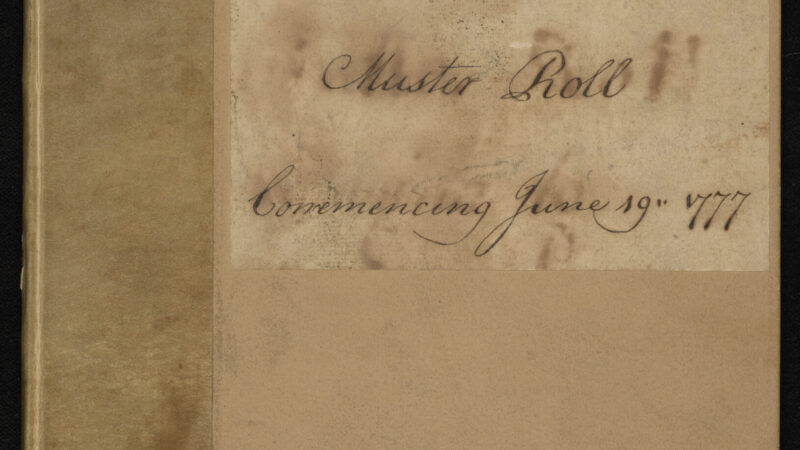 Muster Roll
Commencing June 19" 1777